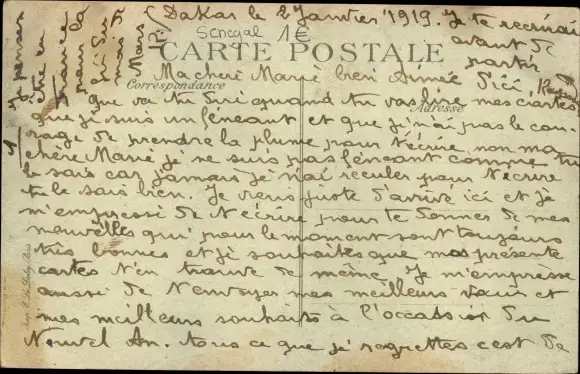 Dakar le 2 Janvier 1919. Je te recrirai
avant de
partir
Sénégal 1€
CARTE POSTALE
Correspondance
Adresse
Ma chere Marie bien Aimée
d'ici
que va tu dire quand tu vas lire mes cartes
que je suis un feneant et que j'n'ai pas le cou-
rage de prendre la plume pour t'écrire, non ma
chère Marie je ne suis pas feneant comme tu
le sais car j'amais je n'ai reculer pour t'ecrire
tu le sais bien. Je viens juste d'arrivé ici et je
m'empresse de t'écrire pour te donner de mes
nouvelles qui pour le moment sont toujours
très bonnes et je souhaites que mes présente
cartes t'en trouve de même. Je m'empresse
aussi de t'envoyer mes meilleurs vœux et
mes meilleurs souhaits à l'occasion du
Nouvel An. tous ce que je regrettes c'est de
je pensais
etre en
France
pour la
fin du
mois de
Mars